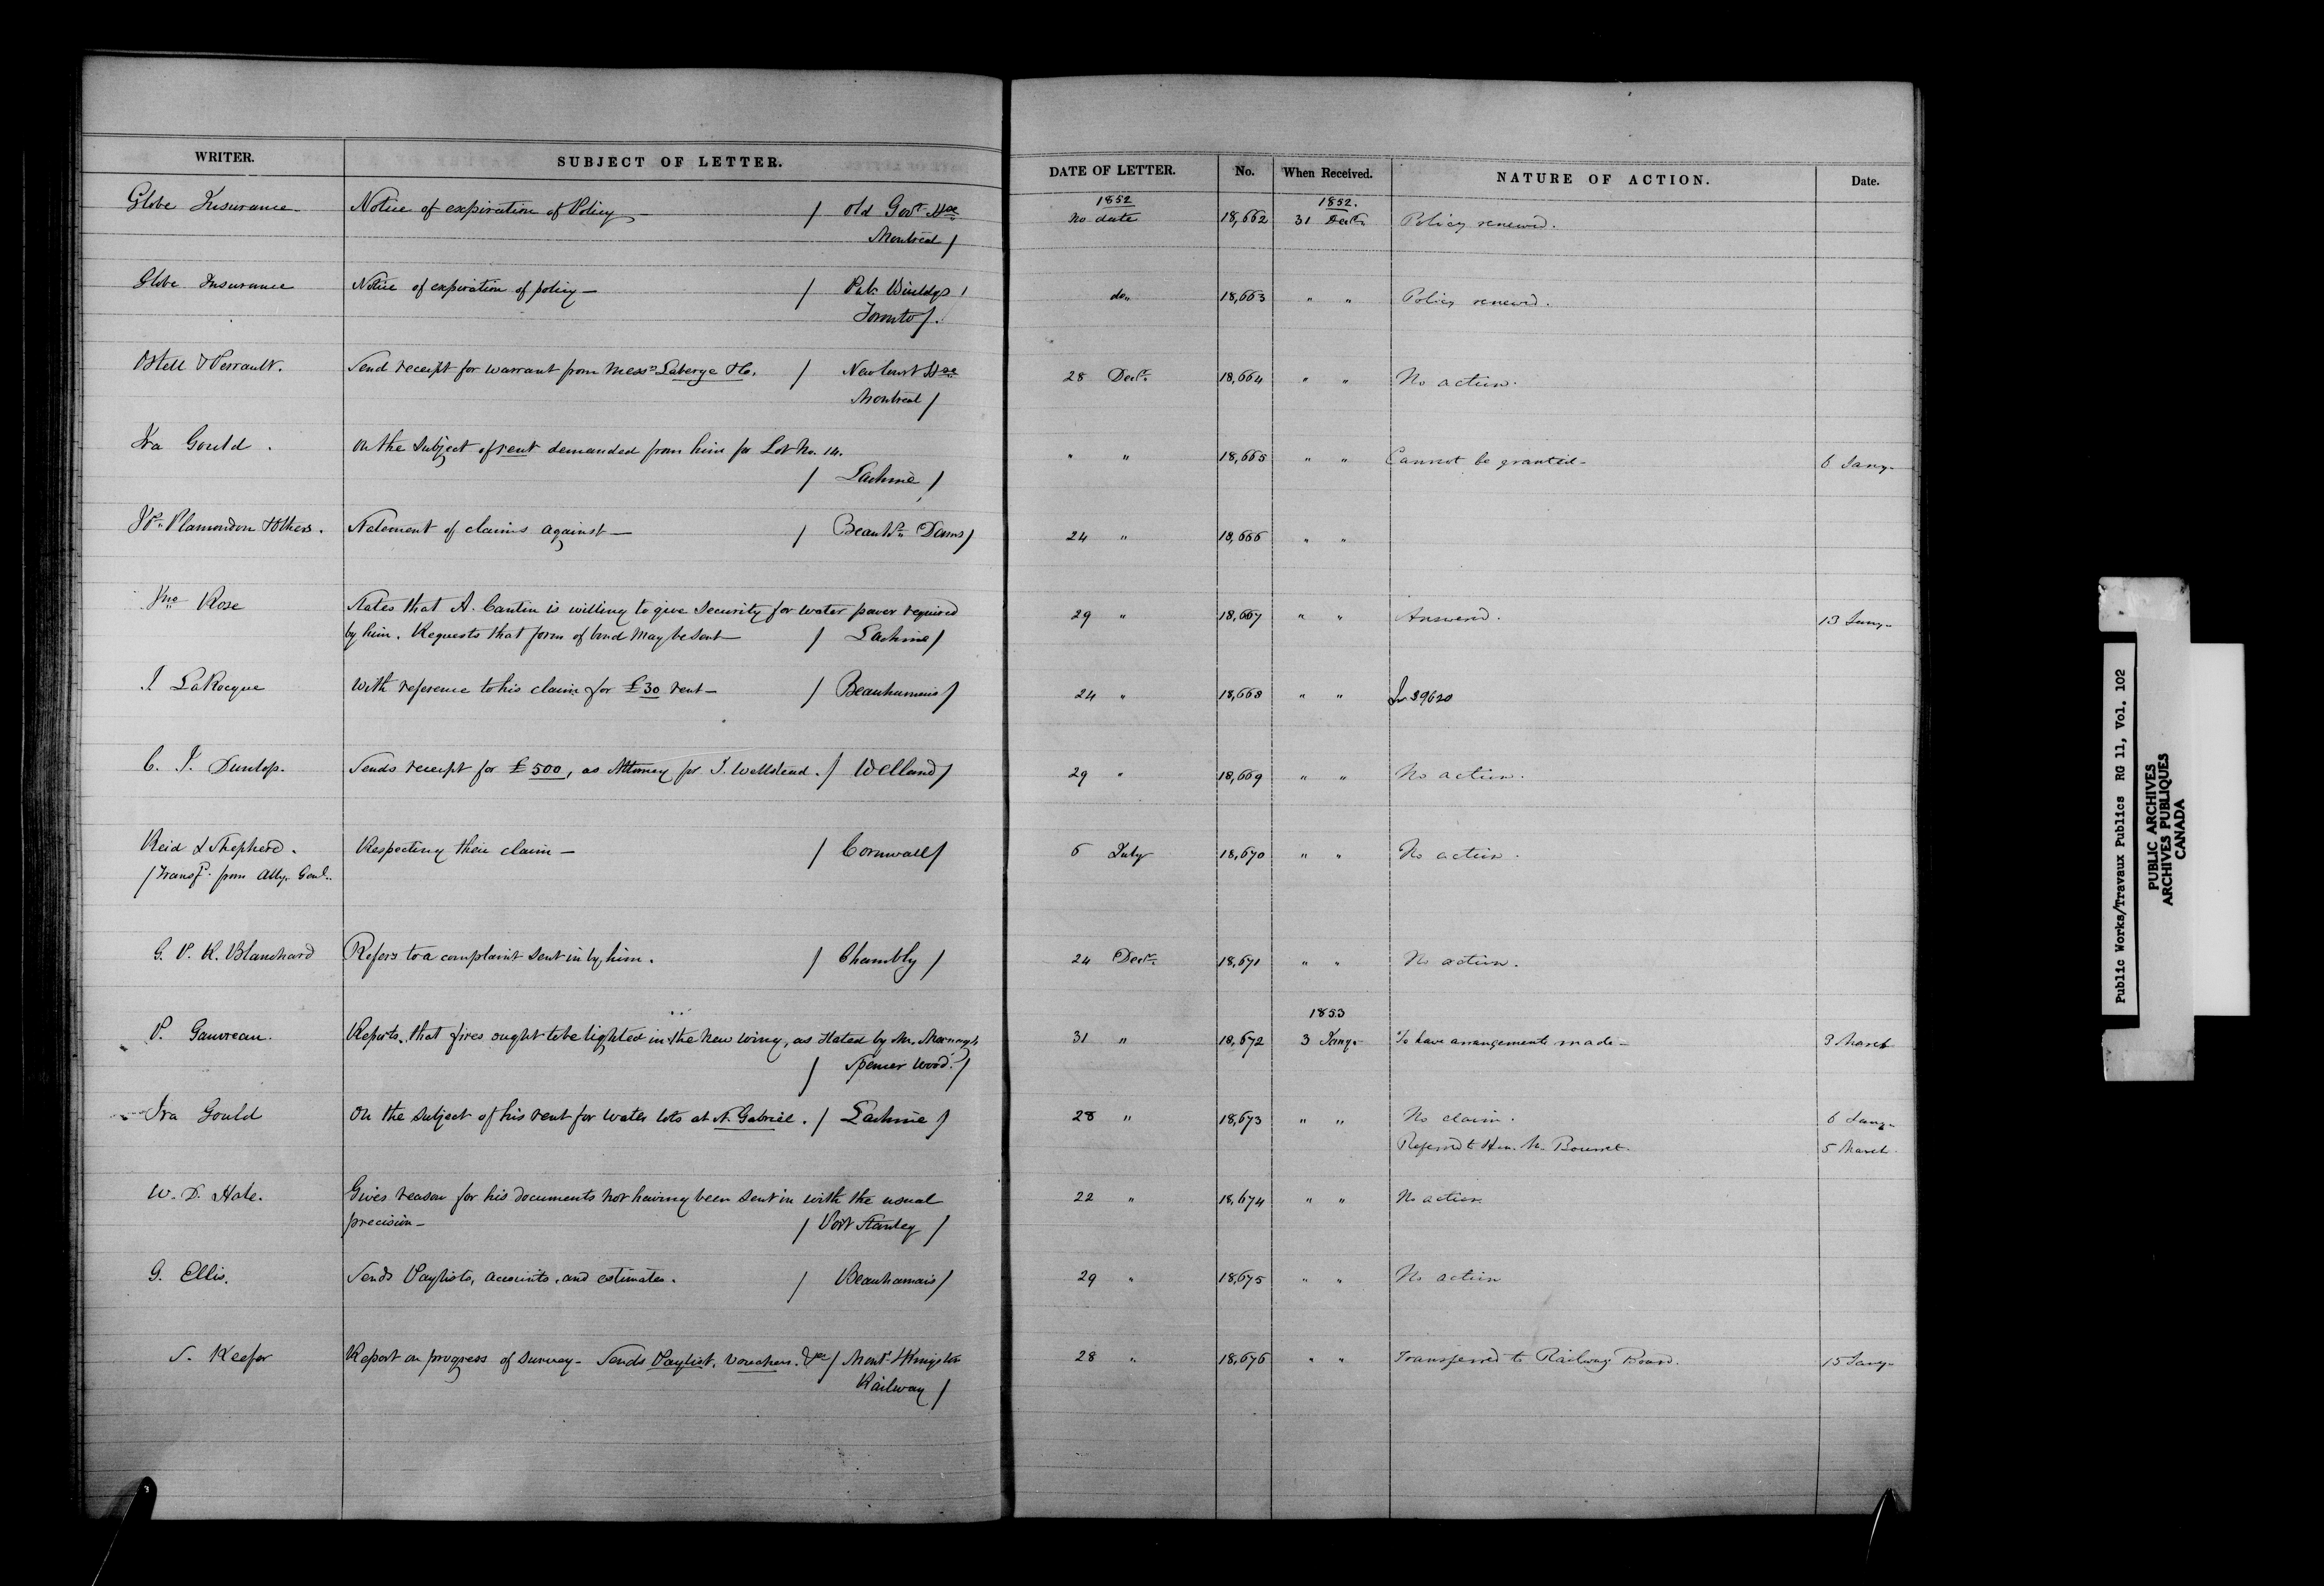 WRITER. SUBJECT OF LETTER. DATE OF LETTER. No. When Received. NATURE OF ACTION. Date.
1852 1852.
Globe Insurance Notice of expiration of Policy — / Old Govt Hse no date 18,662 31 Decr. Policy renewed.
Montreal /
Globe Insurance Notice of expiration of policy — / Pub. Buildgs do. 18,663 " " Policy renewed.
Toronto /.
Ostell & Perrault. Send receipt for warrant from Messrs Laberge & Co. / New Court Hse 28 Decr. 18,664 " " No action.
Montreal /
Ira Gould. On the subject of rent demanded from him for Lot No. 14. " " 18,665 " " Cannot be granted — 6 Jany.
/ Lachine /
Plamondon & Others. Statement of claims against — / Beauhs. Dams / 24 " 18,666 " "
Jno Rose States that A. Cantin is willing to give security for water power required 29 " 18,667 " " Answered. 13 Jany.
by him. Requests that form of bond may be sent — / Lachine /
J. LaRocque With reference to his claim for £30 rent — / Beauharnois / 24 " 18,668 " " 39620
C. J. Dunlop. Sends receipt for £500, as Attorney for J. Wellstead. / Welland / 29 " 18,669 " " No action.
Reid & Shepherd. Respecting their claim — / Cornwall / 6 July 18,670 " " No action.
/ Transfd. from Atty. Genl.
G. P. R. Blanchard Refers to a complaint sent in by him. / Chambly / 24 Decr. 18,671 " " No action.
1853
P. Gauvreau. Reports that fires ought to be lighted in the new wing, as stated by Mr. 31 " 18,672 3 Jany. To have arrangements made — 3 March
/ Spencer Wood. /
Ira Gould On the subject of his rent for water lots at St. Gabriel. / Lachine / 28 " 18,673 " " No claim. 6 Jany.
Referred to Hon. Mr. Bourret. 5 March
W. D. Hale. Gives reason for his documents not having been sent in with the usual 22 " 18,674 " " No action
precision — / Port Stanley /
G. Ellis. Sends Paylists, accounts, and estimates. / Beauharnois / 29 " 18,675 " " No action
S. Keefer Report on progress of survey — Sends Paylist, vouchers. &c / Montl & Kingston 28 " 18,676 " " Transferred to Railway Board. 15 Jany.
Railway /
Public Works/Travaux Publics RG 11, Vol. 102
PUBLIC ARCHIVES
ARCHIVES PUBLIQUES
CANADA